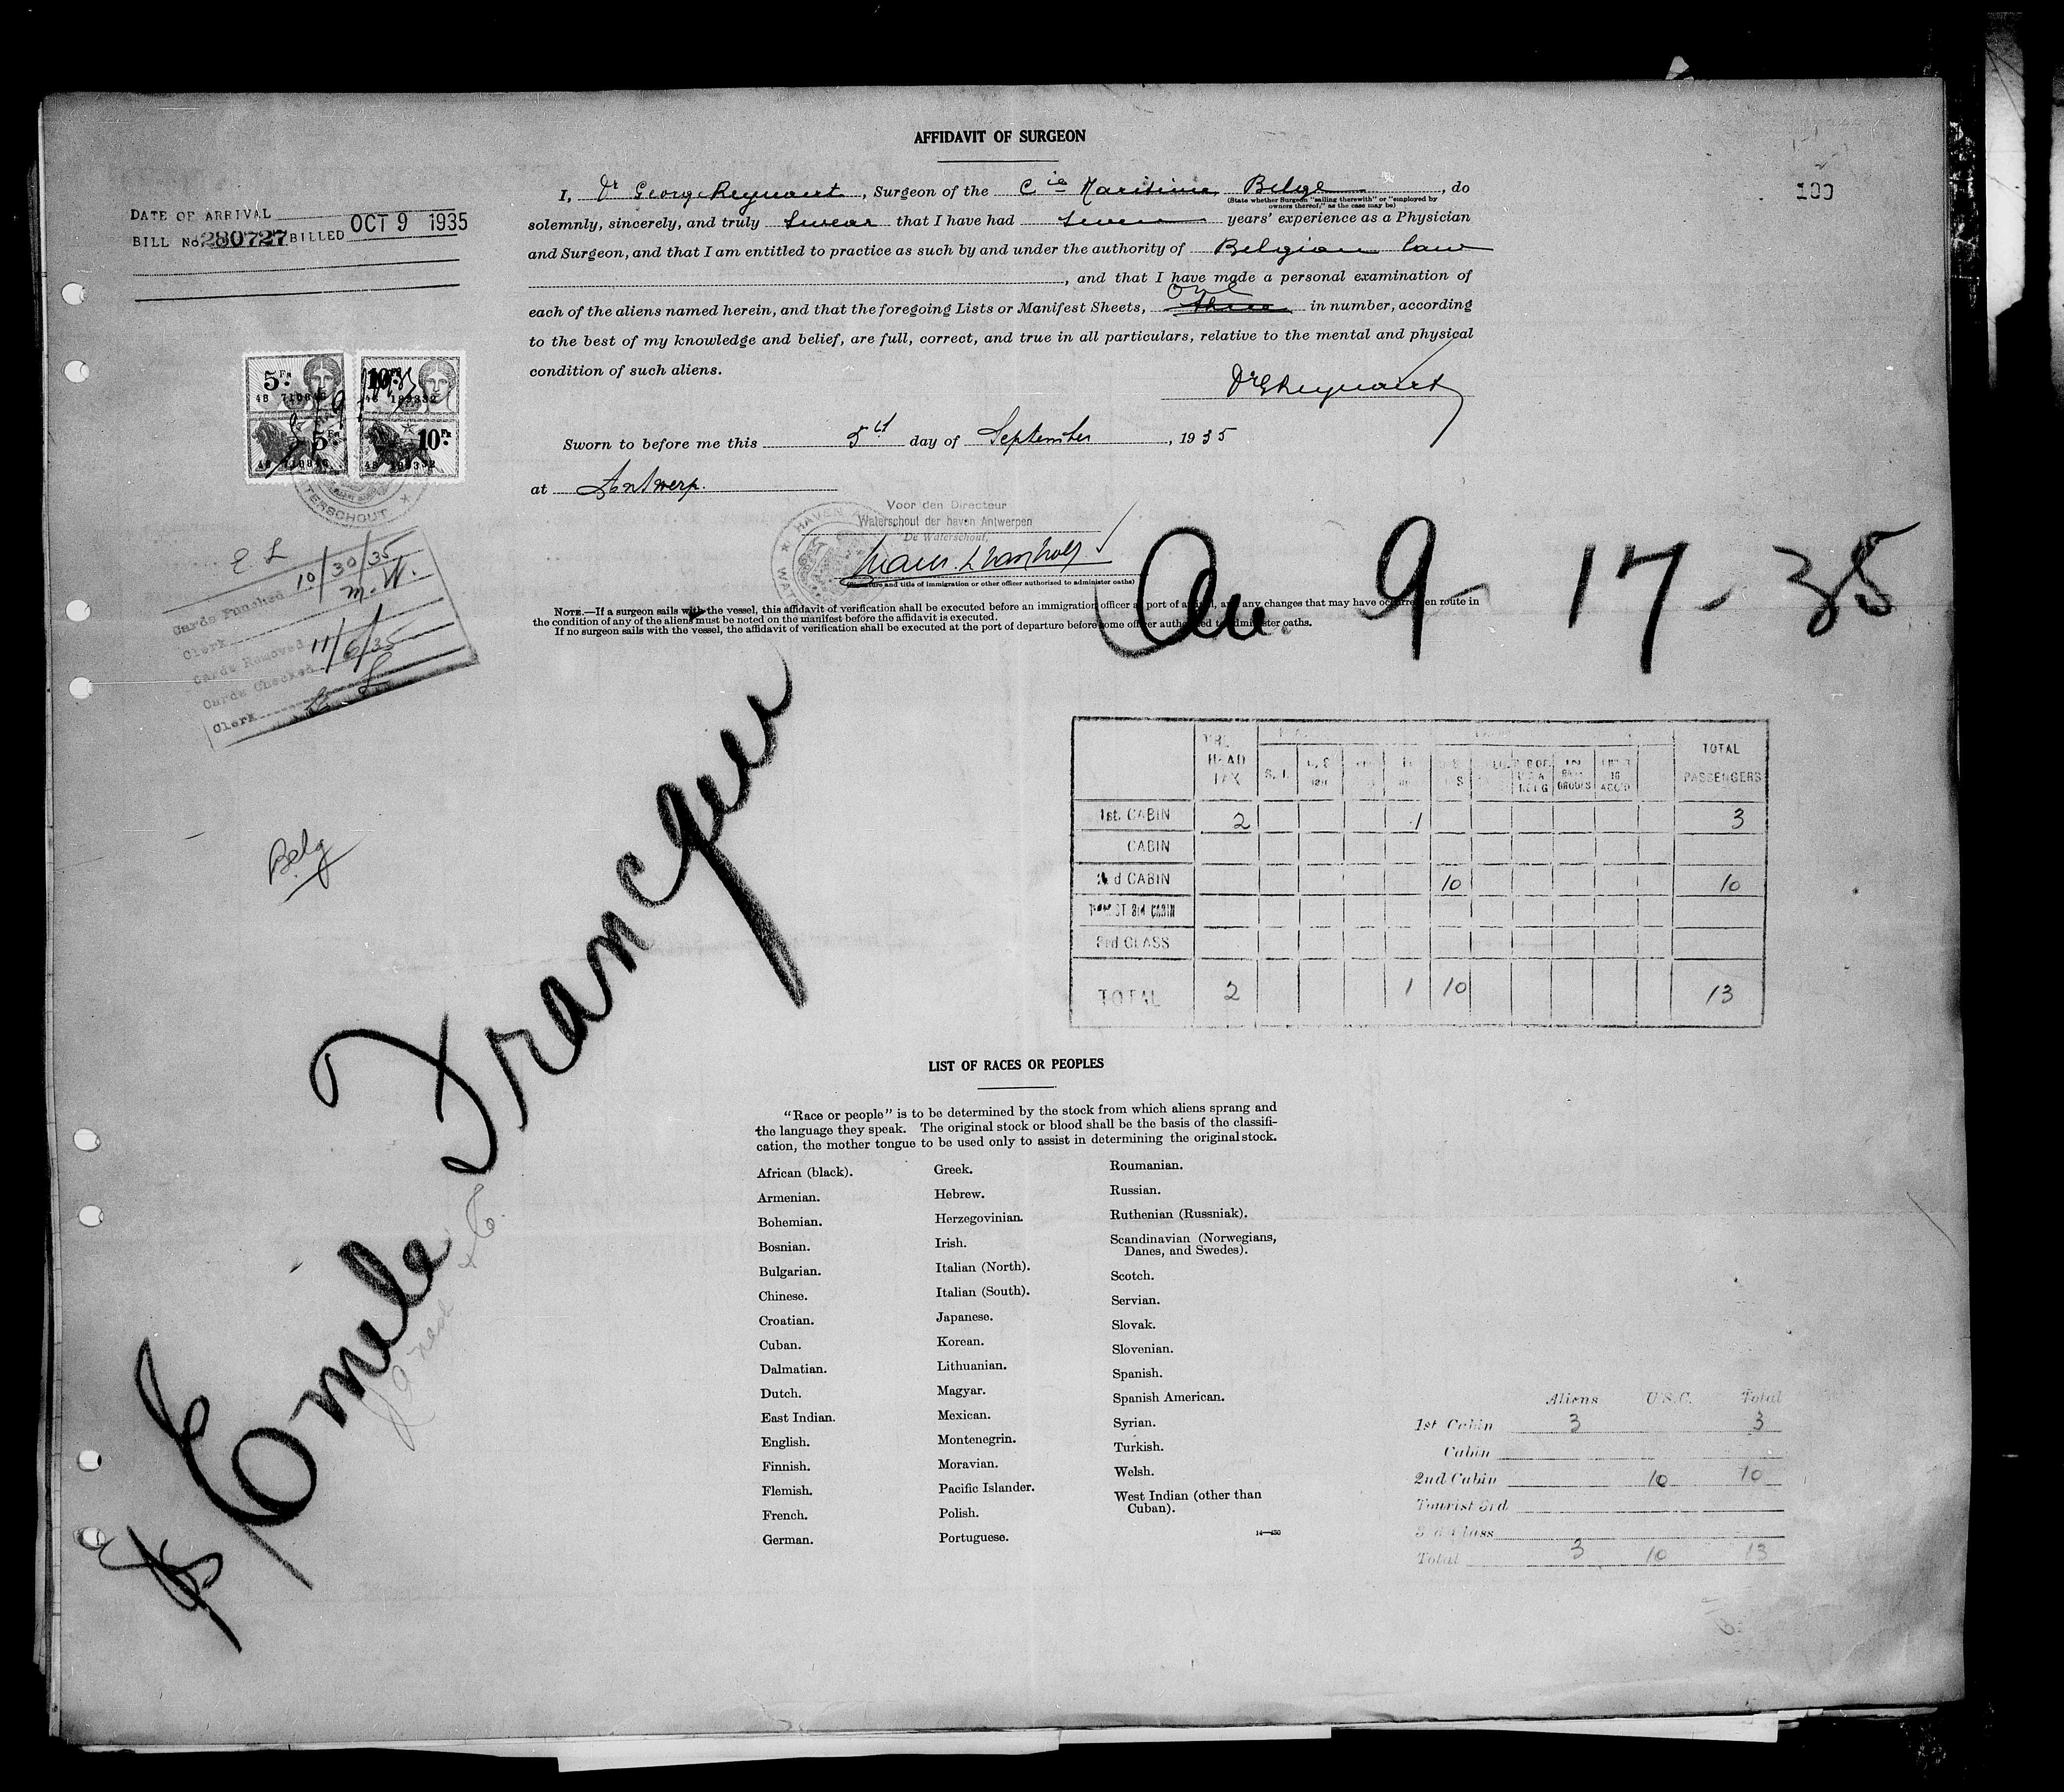 AFFIDAVIT OF SURGEON
I, Dr George Reynaert, Surgeon of the Cie Maritime Belge, do
(State whether Surgeon "sailing therewith" or "employed by owners thereof," as the case may be)
solemnly, sincerely, and truly swear that I have had seven years' experience as a Physician
and Surgeon, and that I am entitled to practice as such by and under the authority of Belgian law
, and that I have made a personal examination of
one
each of the aliens named herein, and that the foregoing Lists or Manifest Sheets, three in number, according
to the best of my knowledge and belief, are full, correct, and true in all particulars, relative to the mental and physical
condition of such aliens.
Dr G Reynaert
Sworn to before me this 5th day of September, 1935
at Antwerp.
Voor den Directeur
Waterschout der haven Antwerpen
De Waterschout,
(Signature and title of immigration or other officer authorized to administer oaths)
NOTE.—If a surgeon sails with the vessel, this affidavit of verification shall be executed before an immigration officer at port of arrival, and any changes that may have occurred en route in
the condition of any of the aliens must be noted on the manifest before the affidavit is executed.
If no surgeon sails with the vessel, the affidavit of verification shall be executed at the port of departure before some officer authorized to administer oaths.
100
DATE OF ARRIVAL
BILL No. 280727 BILLED OCT 9 1935
5 Fr.
10 Fr.
5 Fr.
10 Fr.
WATERSCHOUT
E L
Cards Punched 10/30/35
Clerk M.W.
Cards Removed
Cards Checked 11/6/35
Clerk E L
9-17-35
Belg
SS Emile Francqui
HEAD TAX
TOTAL PASSENGERS
1st. CABIN 2 1 3
CABIN
2nd CABIN 10 10
TOURIST 3rd CABIN
3rd CLASS
TOTAL 2 1 10 13
LIST OF RACES OR PEOPLES
"Race or people" is to be determined by the stock from which aliens sprang and
the language they speak. The original stock or blood shall be the basis of the classifi-
cation, the mother tongue to be used only to assist in determining the original stock.
African (black).
Armenian.
Bohemian.
Bosnian.
Bulgarian.
Chinese.
Croatian.
Cuban.
Dalmatian.
Dutch.
East Indian.
English.
Finnish.
Flemish.
French.
German.
Greek.
Hebrew.
Herzegovinian.
Irish.
Italian (North).
Italian (South).
Japanese.
Korean.
Lithuanian.
Magyar.
Mexican.
Montenegrin.
Moravian.
Pacific Islander.
Polish.
Portuguese.
Roumanian.
Russian.
Ruthenian (Russniak).
Scandinavian (Norwegians,
Danes, and Swedes).
Scotch.
Servian.
Slovak.
Slovenian.
Spanish.
Spanish American.
Syrian.
Turkish.
Welsh.
West Indian (other than
Cuban).
14—450
Aliens U.S.C. Total
1st Cabin 3 3
Cabin
2nd Cabin 10 10
Tourist 3rd
3rd Class
Total 3 10 13